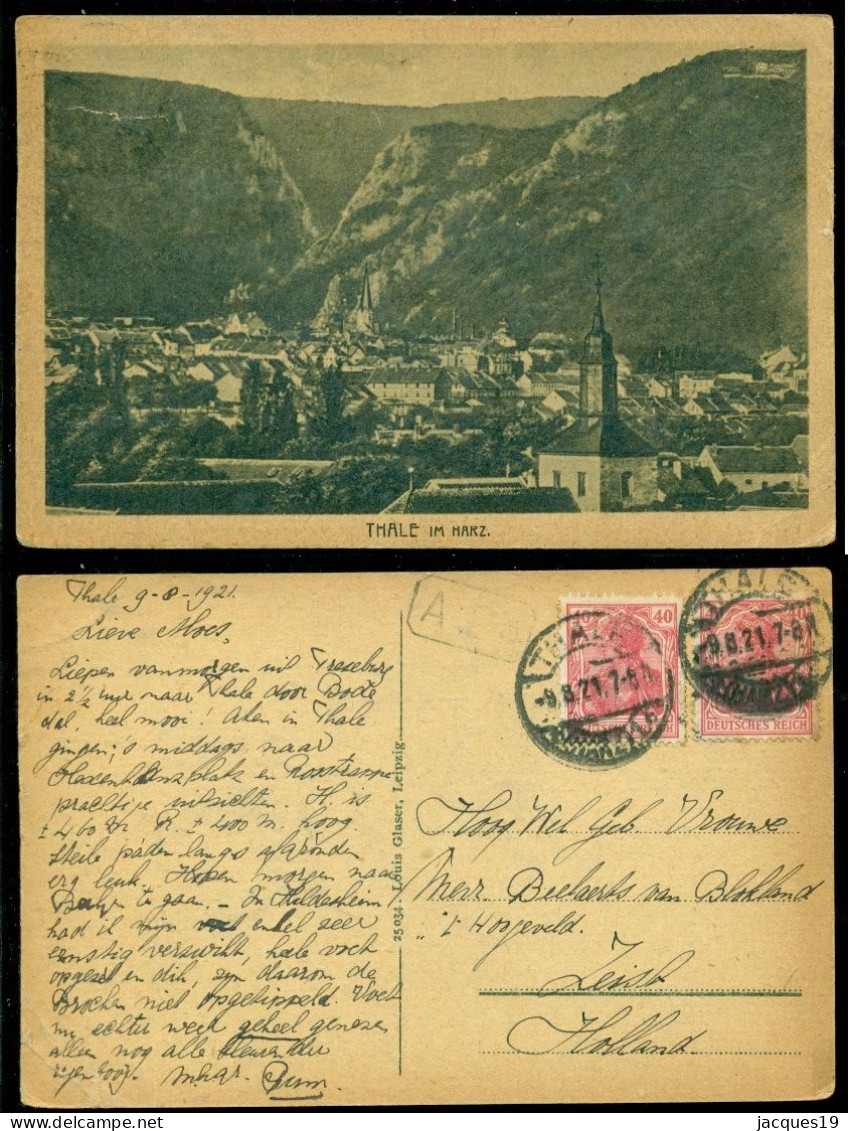 THALE IM HARZ.
Thale 9-8-1921.
Lieve Moes,
Liepen vanmorgen uit Treseburg
in 2½ uur naar Thale door Bode
dal, heel mooi! Aten in Thale
gingen 's middags naar
Hexentanzplatz en Rosstrappe
prachtige uitzichten. H. is
± 460 R. ± 400 m. hoog.
Steile paden langs afgronden
erg leuk. Hopen morgen naar
te gaan. – In Hildesheim
had ik mijn enkel zeer
ernstig verzwikt, heele voet
opgezet en dik, zijn daarom de
Brocken niet opgetippeld. Voet
nu echter weer geheel genezen
alleen nog alle kleuren der
regenboog.
25034. Louis Glaser, Leipzig
A
40
THALE
-9.8.21.7-8
(HARZ)
THALE
-9.8.21.7-8
(HARZ)
DEUTSCHES REICH
Hoog Wel Geb. Vrouwe
Mevr. Beelaerts van Blokland
"'t Hoogeveld.
Zeist
Holland
jacques19